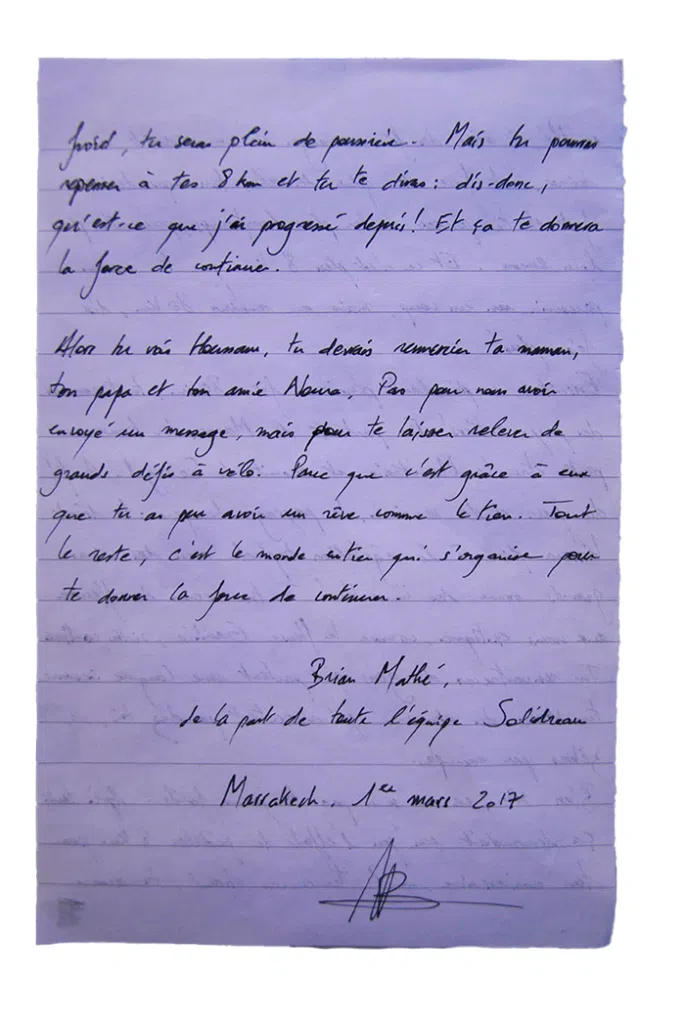 froid, tu seras plein de poussière. Mais tu pourras
repenser à tes 8 km et tu te diras : dis-donc,
qu'est-ce que j'ai progressé depuis ! Et ça te donnera
la force de continuer.
Alors tu vois Houssam, tu devrais remercier ta maman,
ton papa et ton amie Naura, Pas pour nous avoir
envoyé un message, mais pour te laisser relever de
grands défis à vélo. Parce que c'est grâce à eux
que tu as pu avoir un rêve comme le tien. Tout
le reste, c'est le monde entier qui s'organise pour
te donner la force de continuer.
Brian Mathé,
de la part de toute l'équipe Solidreau
Marrakech, 1er mars 2017